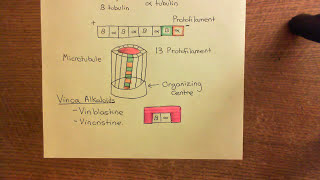 β tubulin α tubulin
+ Protofilament -
β α β α β α β α
Microtubule 13 Protofilament
Organizing
Centre
Vinca Alkaloids
- Vinblastine
- Vincristine
β α